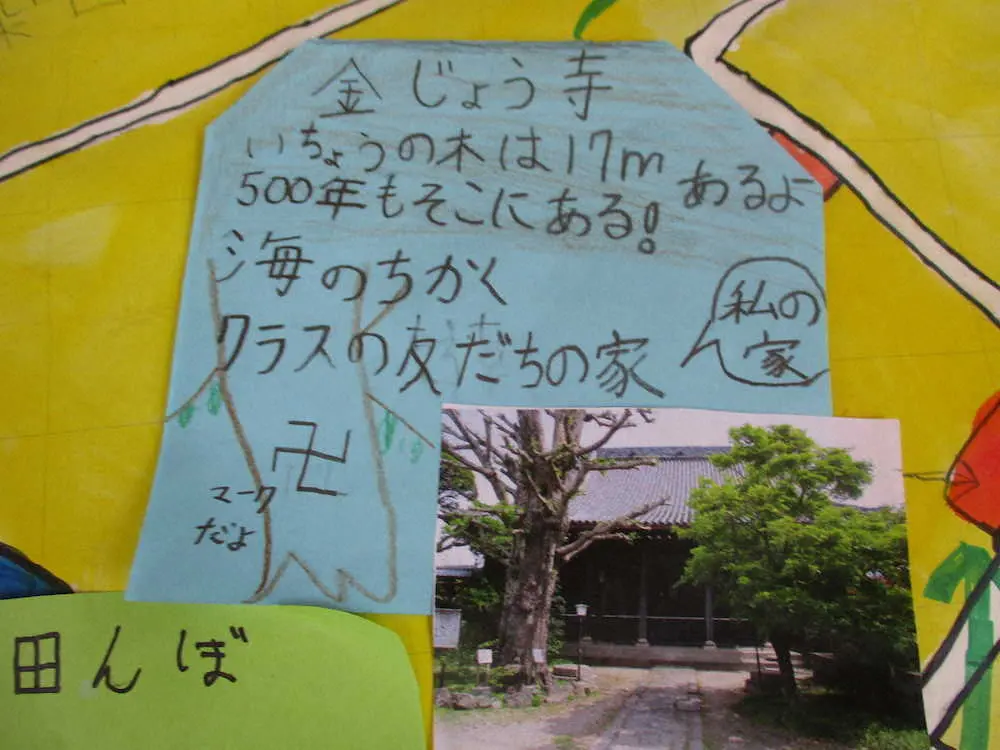 金じょう寺
いちょうの木は17mあるよ
500年もそこにある!
海のちかく
クラスの友だちの家
私の
家
卍
マーク
だよ
田んぼ